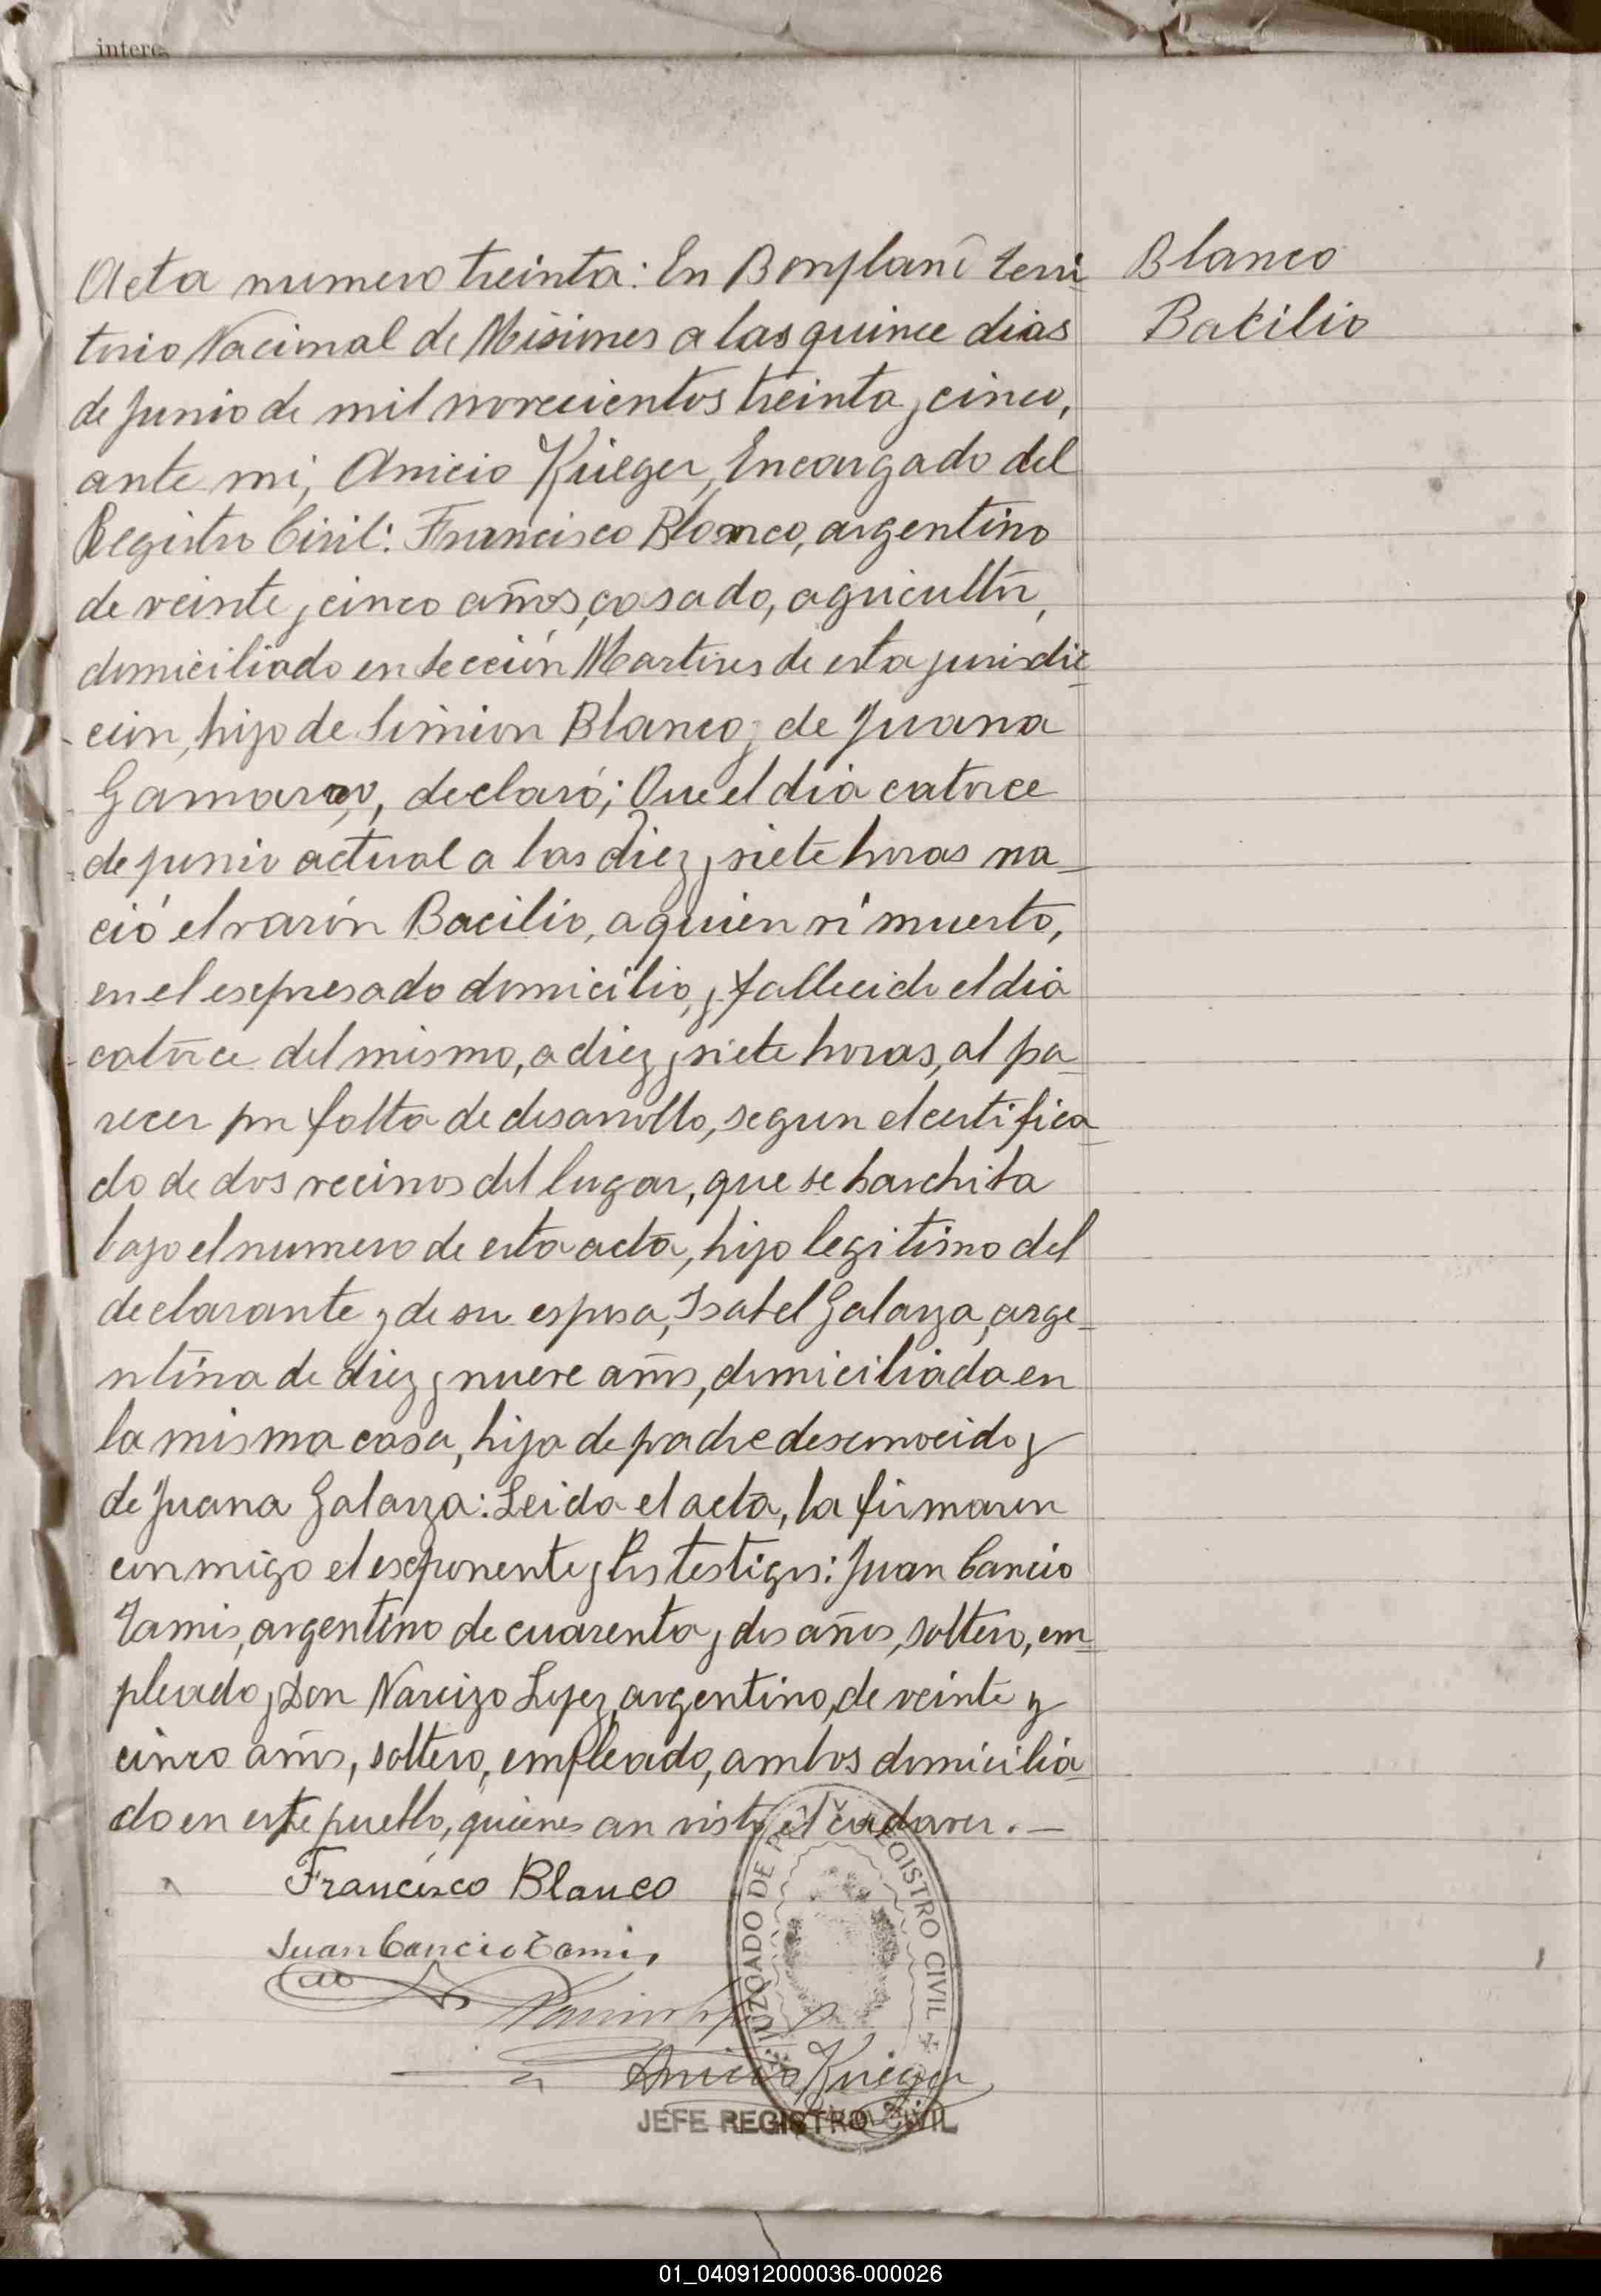 interes
Acta numero treinta: En Bonpland terri
torio Nacional de Misiones a las quince dias
de junio de mil novecientos treinta y cinco,
ante mi, Anicio Krieger, Encargado del
Registro Civil: Francisco Blanco, argentino
de veinte y cinco años, casado, agricultor,
domiciliado en sección Martires de esta jurisdic
-cion, hijo de Simion Blanco y de Juana
Gamarra, declaró; Que el dia catorce
de junio actual a las diez y siete horas na_
ció el varón Bacilio, a quien ví muerto,
en el esepresado domicilio, y fallecido el dia
catorce del mismo, a diez y siete horas, al pa_
recer por falta de desarrollo, segun el certifica_
do de dos vecinos del lugar, que se harchiba
bajo el numero de esta acta, hijo legitimo del
declarante y de su esposa, Isabel Galarza, arge_
ntina de diez y nueve años, domiciliada en
la misma casa, hija de padre desconocido y
de Juana Galarza: Leida el acta, la firmaron
conmigo el eseponente y los testigos: Juan Cancio
Tamis, argentino de cuarenta y dos años, soltero, em_
pleado y Don Narcizo Lopez, argentino, de veinte y
cinco años, soltero, empleado, ambos domicilia_
do en este pueblo, quienes an visto el cadaver. —
Blanco
Bacilio
Francisco Blanco
Juan Cancio Tamis
Anicio Krieger
JUZGADO DE PAZ Y REGISTRO CIVIL
JEFE REGISTRO CIVIL
01_040912000036-000026